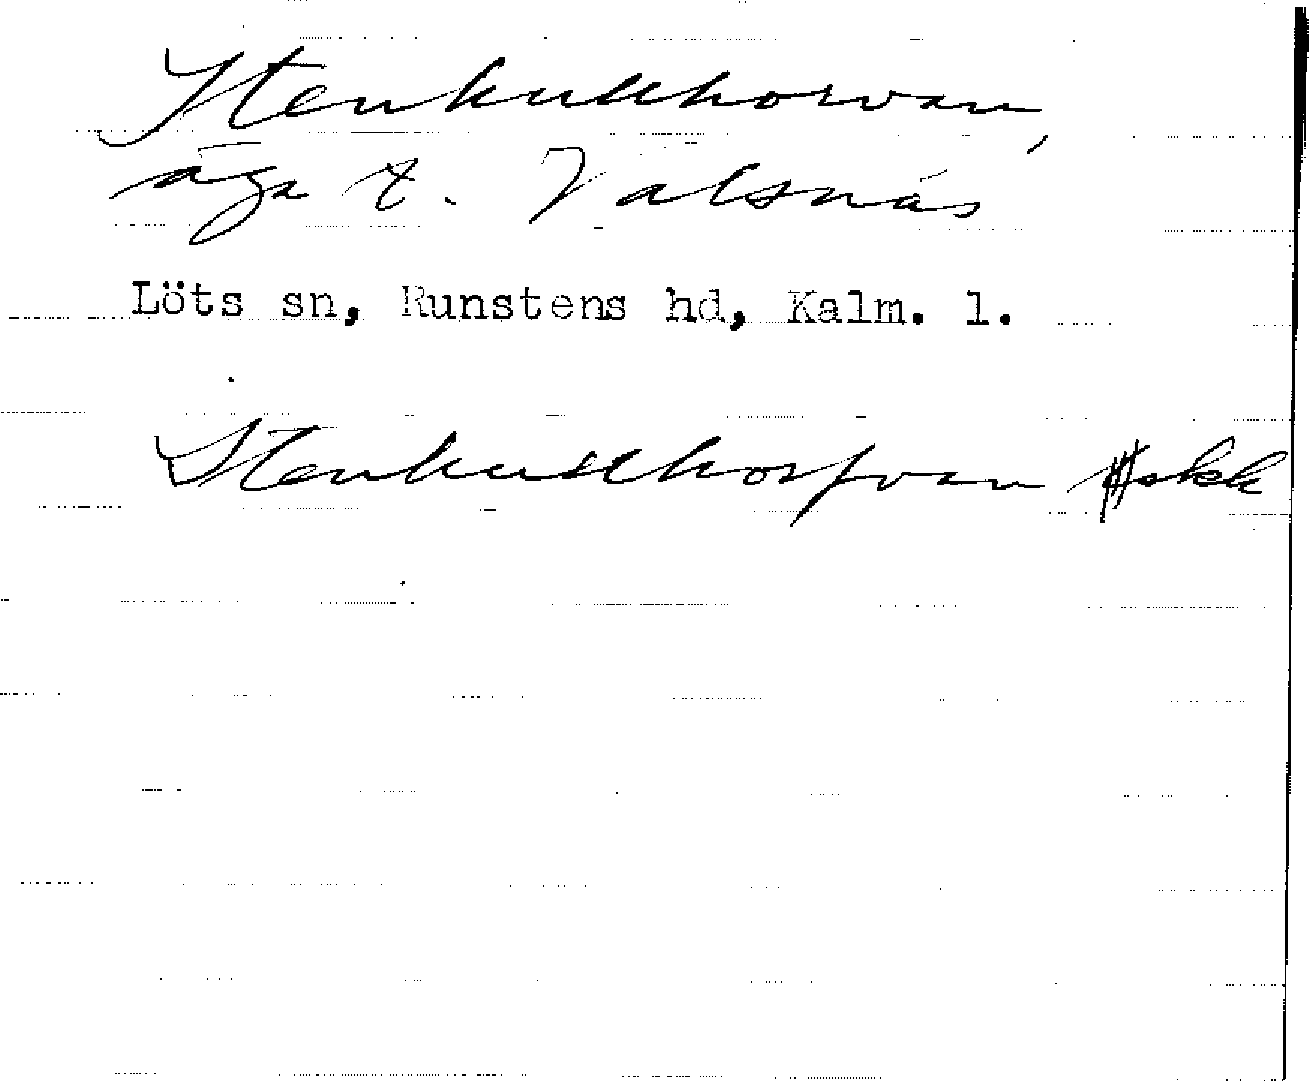 Stenkullhorvan,
äga t. Valsnäs
Löts sn, Runstens hd, Kalm. l.
Stenkullhorfvan skk